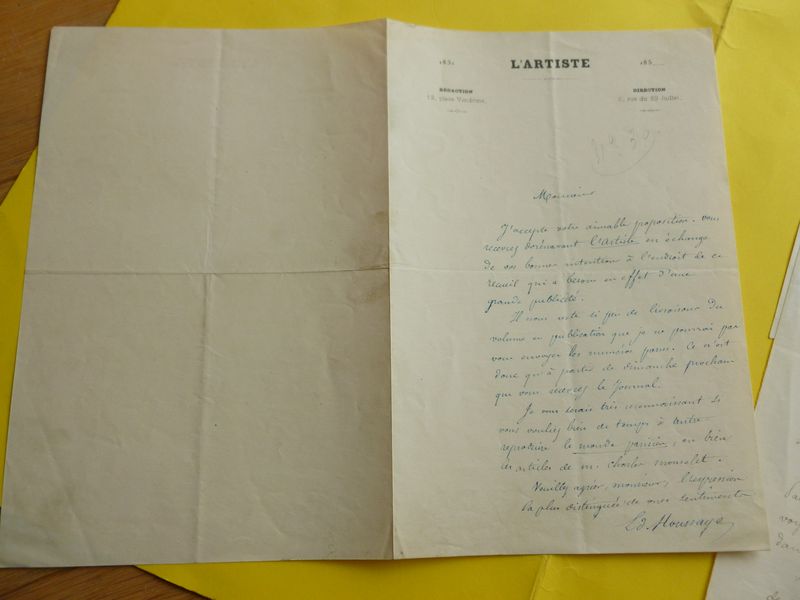 183. L'ARTISTE 185
RÉDACTION DIRECTION
12, place Vendôme. rue du 29 Juillet.
N° 30
Monsieur
J'accepte votre aimable proposition. vous
recevrez dorénavant l'artiste en échange
de vos bonnes intentions à l'endroit de ce
recueil qui a besoin en effet d'une
grande publicité.
Il nous reste si peu de livraisons du
volume en publication que je ne pourrai pas
vous envoyer les numéros parus. Ce n'est
donc qu'à partir de dimanche prochain
que vous recevrez le Journal.
Je vous serais très reconnaissant si
vous vouliez bien de temps à autre
reproduire le monde parisien, ou bien
les articles de m. charles monselet.
Veuillez agréer, monsieur, l'expression
la plus distinguée de mes sentiments
Ed. Houssaye
voy
dan